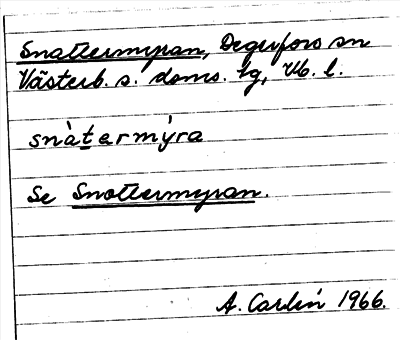 Snattermyran, Degerfors sn
Västerb. s. doms. tg, Vb. l.
snàtermýra
Se Snottermyran.
A. Carlén 1966.